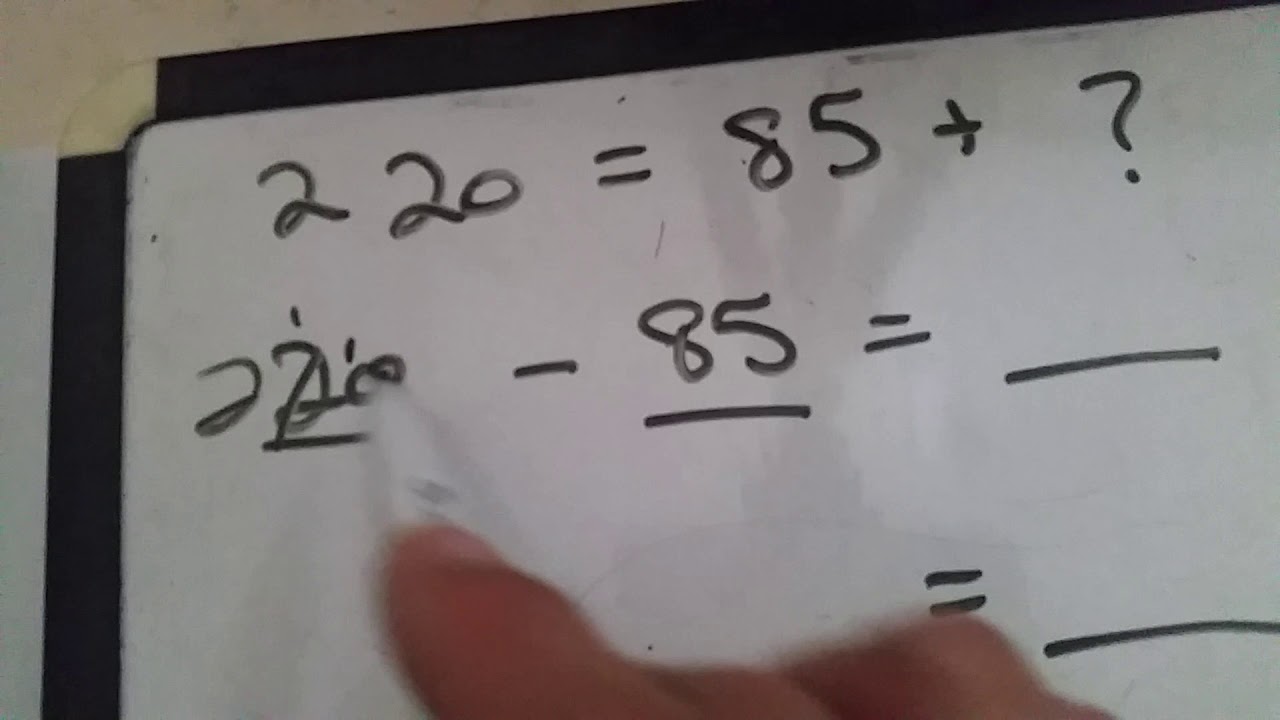 220 = 85 + ?
220 - 85 = ___
= ___